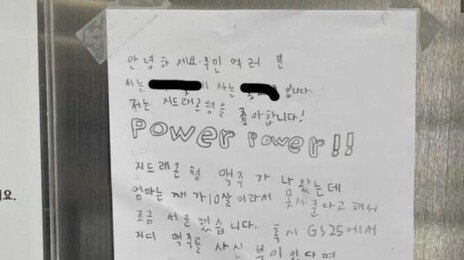 안녕하세요. 주민 여러분
저는 이 사는 입니다.
저는 지드래곤형을 좋아합니다!
POWER POWER!!
지드래곤형 맥주가 나왔는데
엄마는 제가 10살이라서 못사준다고 해서
조금 서운했습니다. 혹시 GS25에서
지디 맥주를 사신 분이 있다면
요.